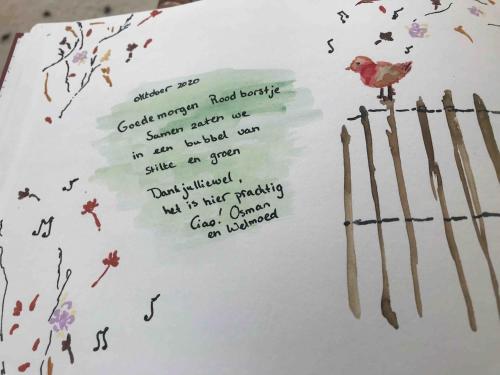 oktober 2020
Goedemorgen Roodborstje
Samen zaten we
in een bubbel van
stilte en groen
Dankjulliewel,
het is hier prachtig
Ciao! Osman
en Welmoed